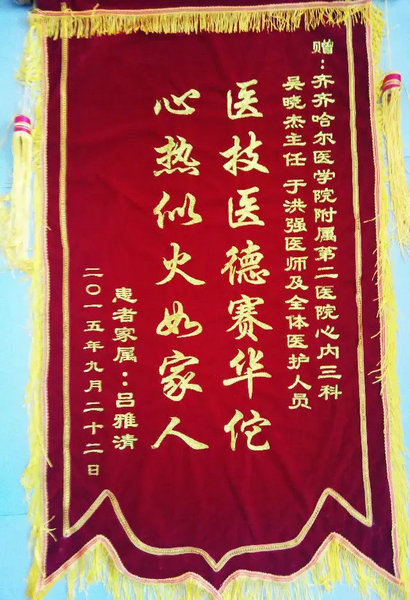 赠：齐齐哈尔医学院附属第二医院心内三科
吴晓杰主任 于洪强医师及全体医护人员
医技医德赛华佗
心热似火如家人
患者家属：吕雅清
二〇一五年九月二十二日